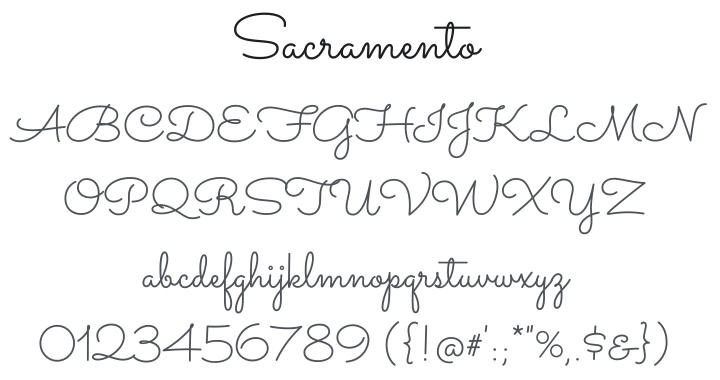 Sacramento
ABCDEFGHIJKLMN
OPQRSTUVWXYZ
abcdefghijklmnopqrstuvwxyz
0123456789 ({!@#':;*"%,.$&})